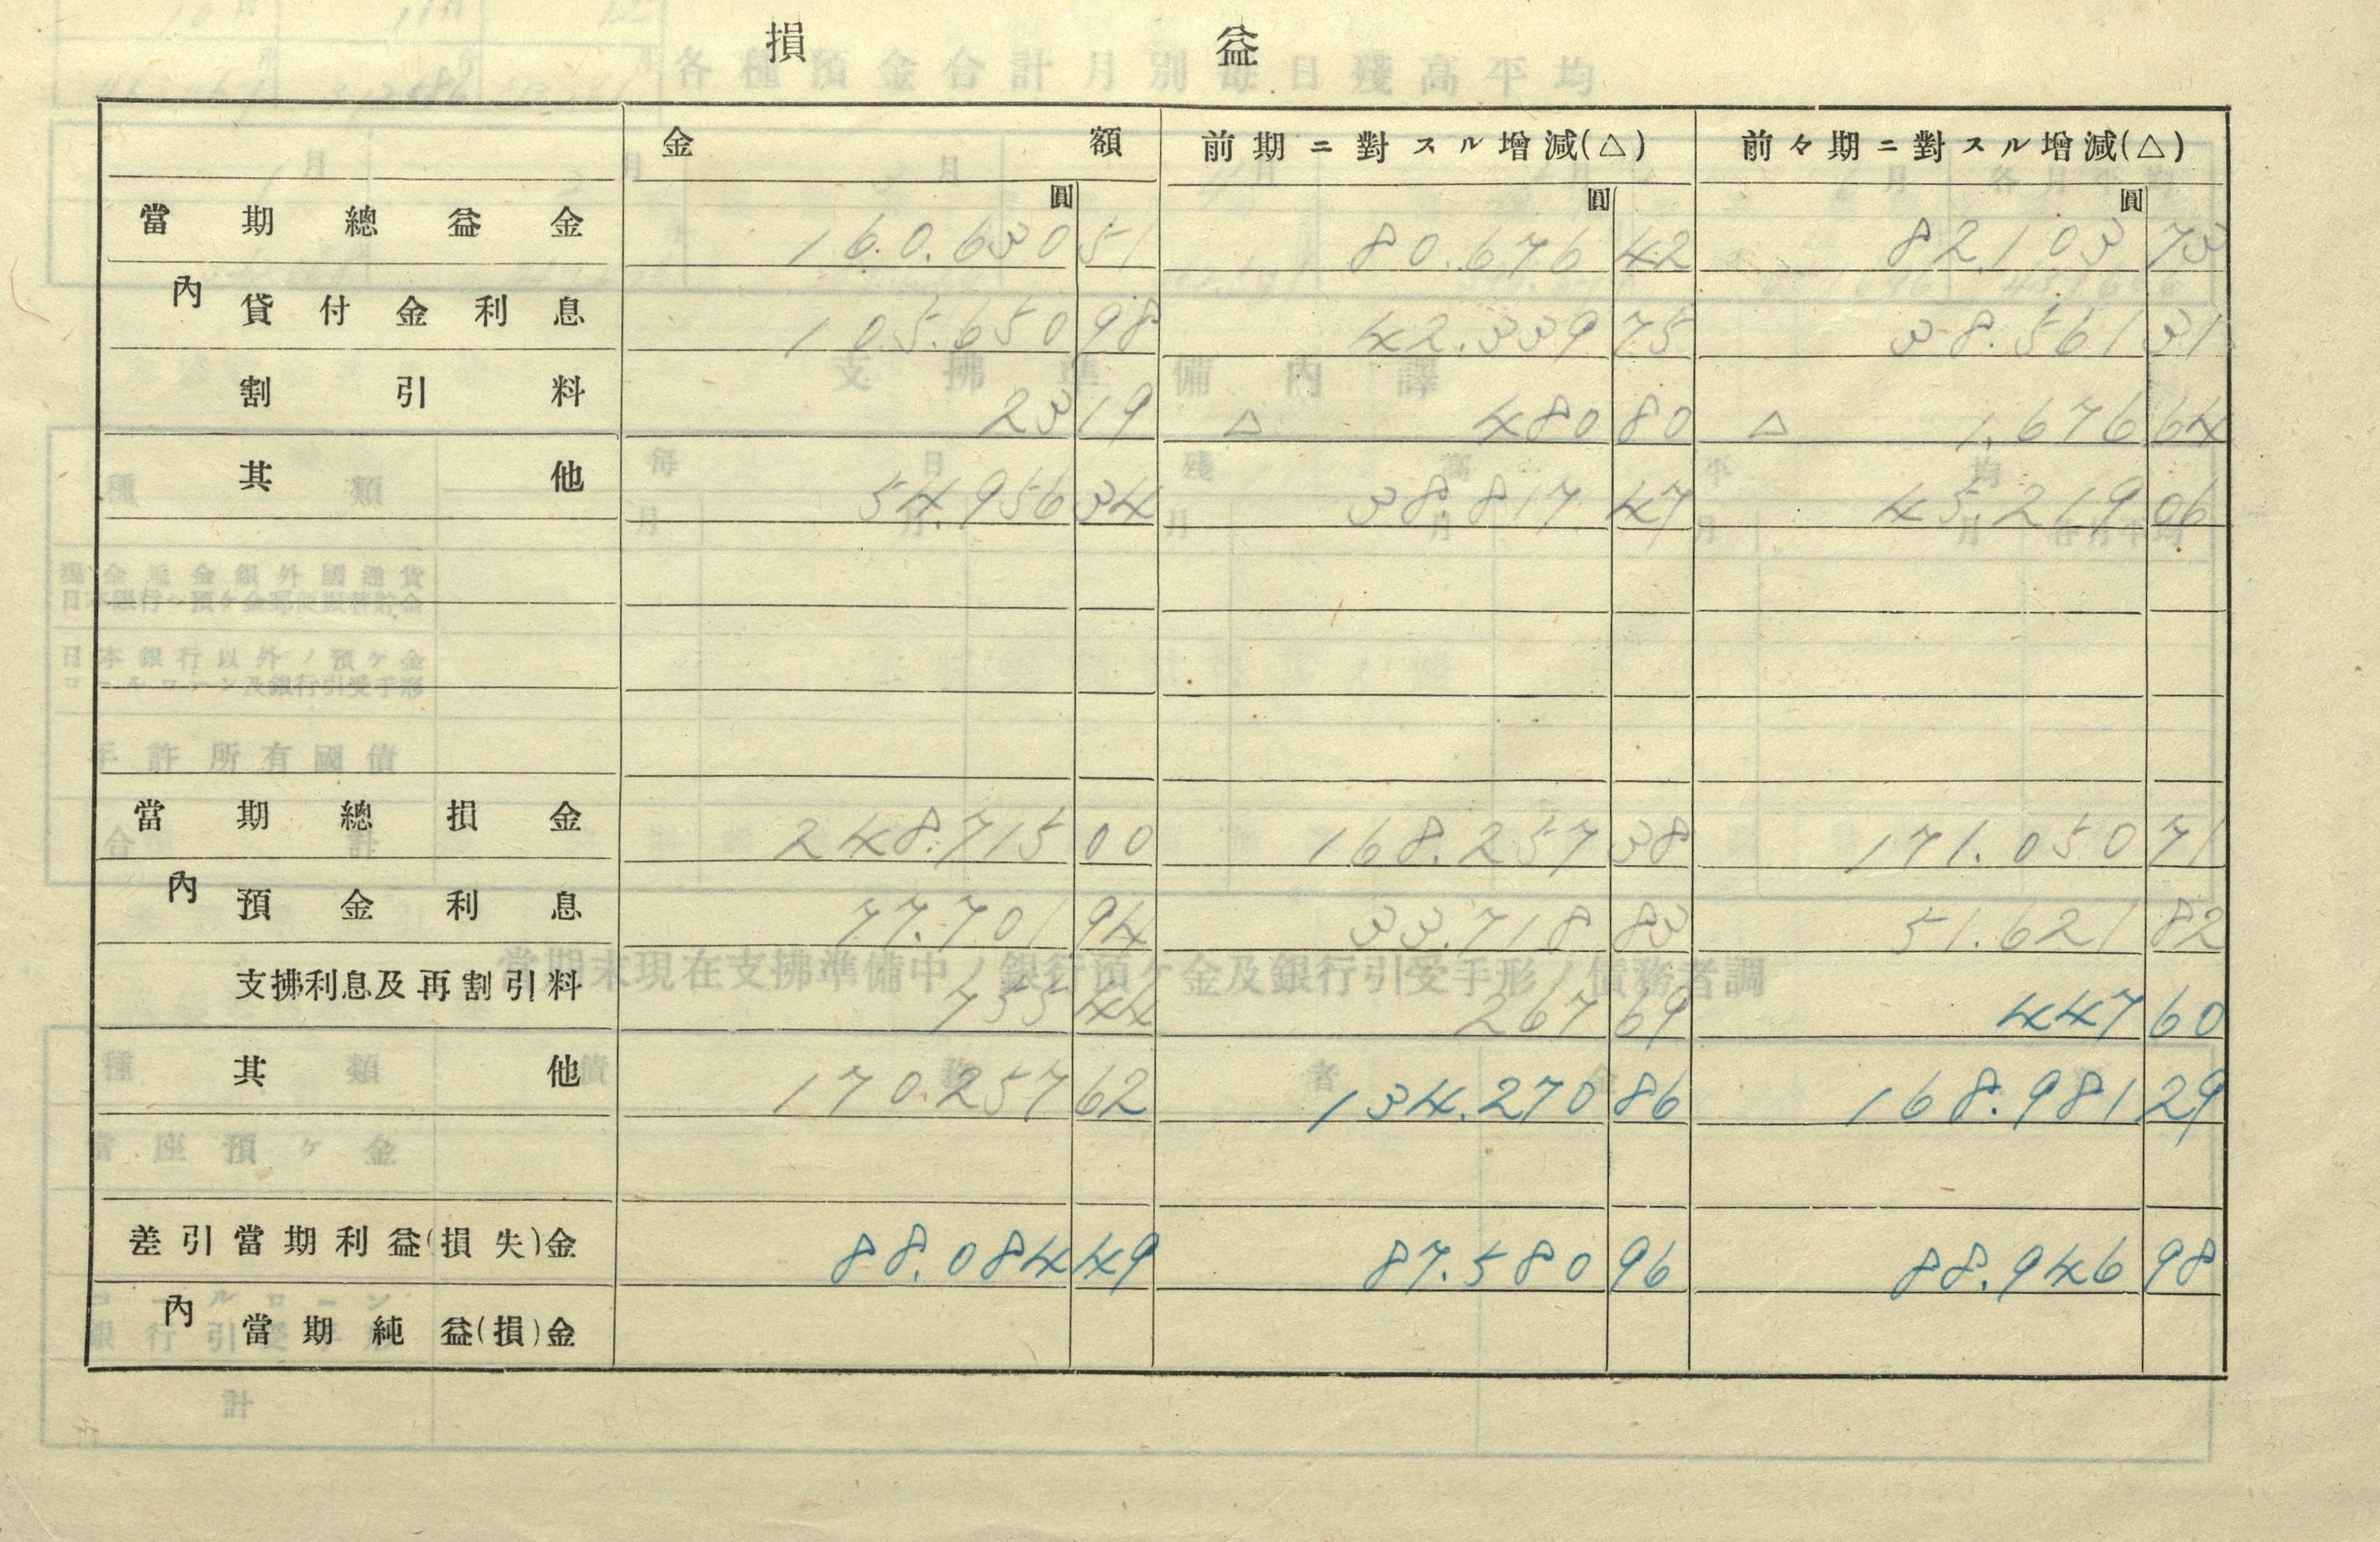 損益
金額 前期ニ對スル增減(△) 前々期ニ對スル增減(△)
圓 圓 圓
當期總益金 160.630 51 80.676 42 82.103 73
內 貸付金利息 105.650 98 42.339 75 38.561 31
割引料 23 19 △ 480 80 △ 1.676 64
其他 54.956 34 38.817 47 45.219 06
當期總損金 248.715 00 168.257 38 171.050 71
內 預金利息 77.701 94 33.718 83 51.621 82
支拂利息及再割引料 755 44 267 69 447 60
其他 170.257 62 134.270 86 168.981 29
差引當期利益(損失)金 88.084 49 87.580 96 88.946 98
內 當期純益(損)金